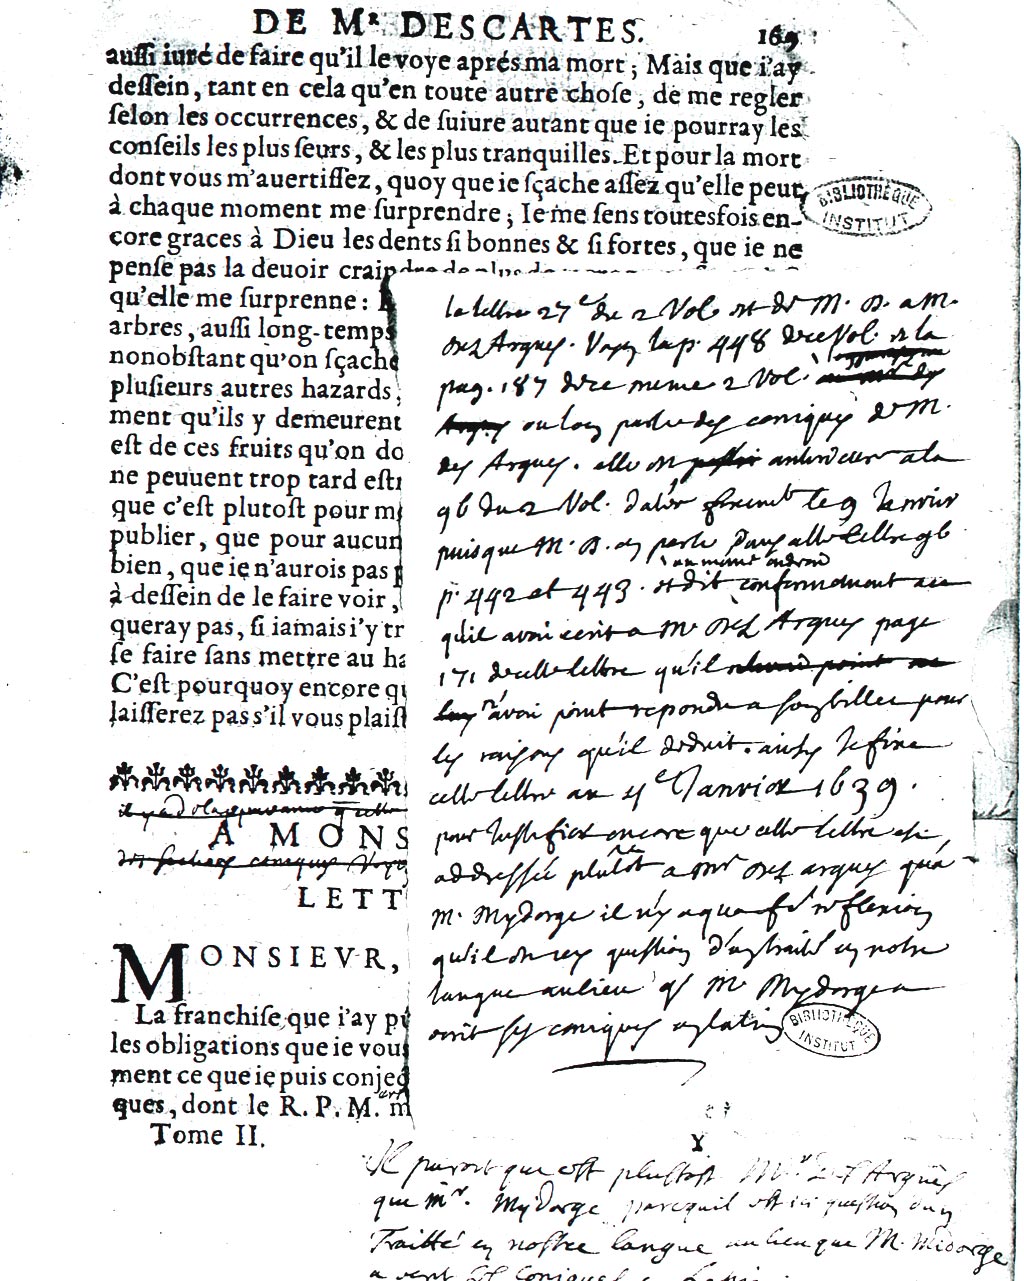 DE Mʀ DESCARTES. 169
auſſi iuré de faire qu'il le voye aprés ma mort ; Mais que i'ay
deſſein, tant en cela qu'en toute autre choſe, de me regler
ſelon les occurrences, & de ſuiure autant que ie pourray les
conſeils les plus ſeurs, & les plus tranquilles. Et pour la mort
dont vous m'auertiſſez, quoy que ie ſçache aſſez qu'elle peut
à chaque moment me ſurprendre ; Ie me ſens toutesfois en-
core graces à Dieu les dents ſi bonnes & ſi fortes, que ie ne
penſe pas la deuoir craindre de plus de
qu'elle me ſurprenne :
arbres, auſſi long-temps
nonobſtant qu'on ſçache
pluſieurs autres hazards,
ment qu'ils y demeurent
eſt de ces fruits qu'on do
ne peuuent trop tard eſti
que c'eſt plutoſt pour m
publier, que pour aucun
bien, que ie n'aurois pas p
à deſſein de le faire voir,
queray pas, ſi iamais i'y tr
ſe faire ſans mettre au ha
C'eſt pourquoy encore qu
laiſſerez pas s'il vous plaiſt
A MONS
LETT
MONSIEVR,
La franchiſe que i'ay p
les obligations que ie vous
ment ce que ie puis conjec
ques, dont le R. P. M. m
Tome II.
BIBLIOTHÈQUE
INSTITUT
la lettre 27e du 2 Vol est de M. D. a M.
des Argues. Voyez la p. 448 de ce Vol. et la
pag. 187 de ce meme 2 Vol.
ou lon parle des coniques de M.
des Argues. elle est anterieure a la
96 du 2 Vol. datée fixemt le 9 Janvier
puisque M. D. en parle dans cette lettre 96
au meme endroit
p. 442 et 443. et dit confirmément au
qu'il avoit ecrit a Mr des Argues page
171 de cette lettre qu'il
n'avoit point repondu a son billet pour
les raisons qu'il deduit. ainsy je fixe
cette lettre au 4e Janvier 1639.
pour justifier encore que cette lettre est
addressée plutôt a Mr des argues qu'à
M. Mydorge il n'y a qu'a fe reflexion
qu'il est icy question d'un traité en notre
langue au lieu q M. Mydorge a
ecrit ses coniques en latin
BIBLIOTHÈQUE
INSTITUT
Y
Il paroit que cest plustost Mr. Des Argues
que Mr. Mydorge parcequil est ici question dun
Traitté en nostre langue au lieu que M. Midorge
a ecrit ses coniques en Latin.